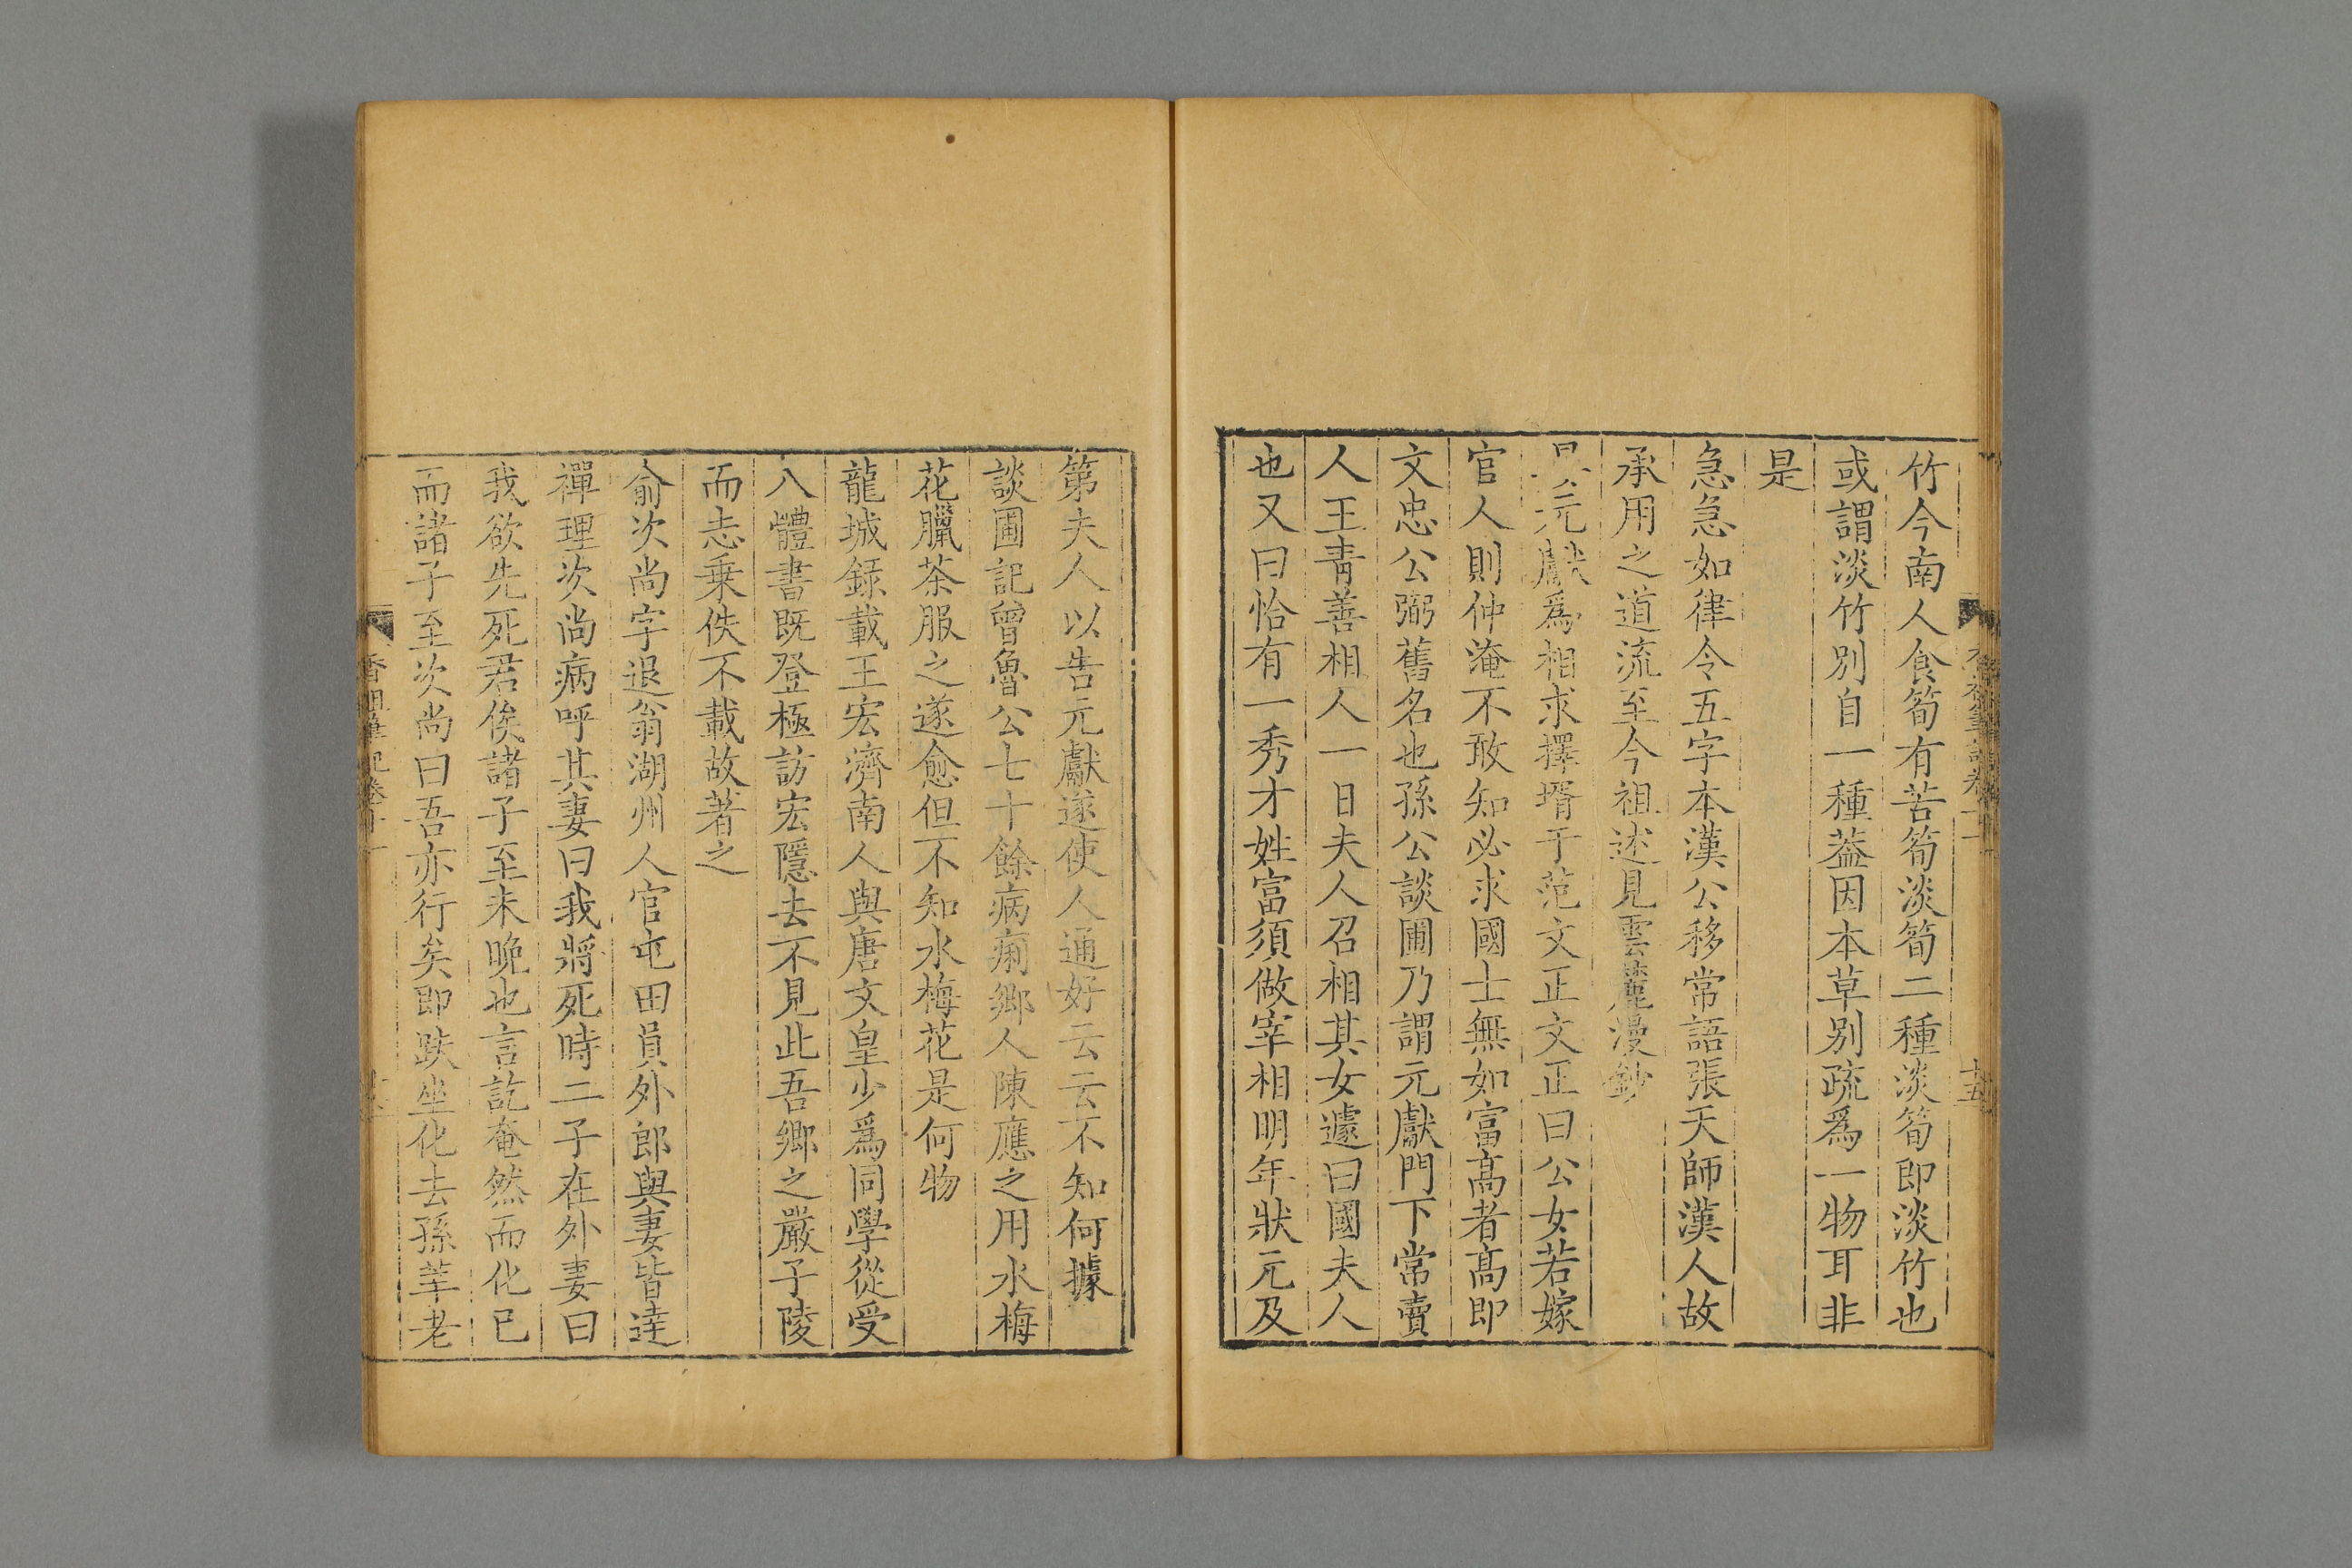 竹今南人食筍有苦筍淡筍二種淡筍即淡竹也
或謂淡竹別自一種葢因本草別疏爲一物耳非
是
急急如律令五字本漢公移常語張天師漢人故
承用之道流至今祖述見雲麓漫鈔
晏元獻爲相求擇壻于范文正文正曰公女若嫁
官人則仲淹不敢知必求國士無如富高者高即
文忠公弼舊名也孫公談圃乃謂元獻門下常賣
人王青善相人一日夫人召相其女遽曰國夫人
也又曰恰有一秀才姓富須做宰相明年狀元及
第夫人以告元獻遂使人通好云云不知何據
談圃記曾魯公七十餘病痢鄉人陳應之用水梅
花臘茶服之遂愈但不知水梅花是何物
龍城錄載王宏濟南人與唐文皇少爲同學從受
八體書既登極訪宏隱去不見此吾鄉之嚴子陵
而志乗佚不載故著之
俞次尚字退翁湖州人官屯田員外郎與妻皆達
禪理次尚病呼其妻曰我將死時二子在外妻曰
我欲先死君俟諸子至未晚也言訖奄然而化已
而諸子至次尚曰吾亦行矣即趺坐化去孫莘老
香祖筆記卷十一
十五
香祖筆記卷十一